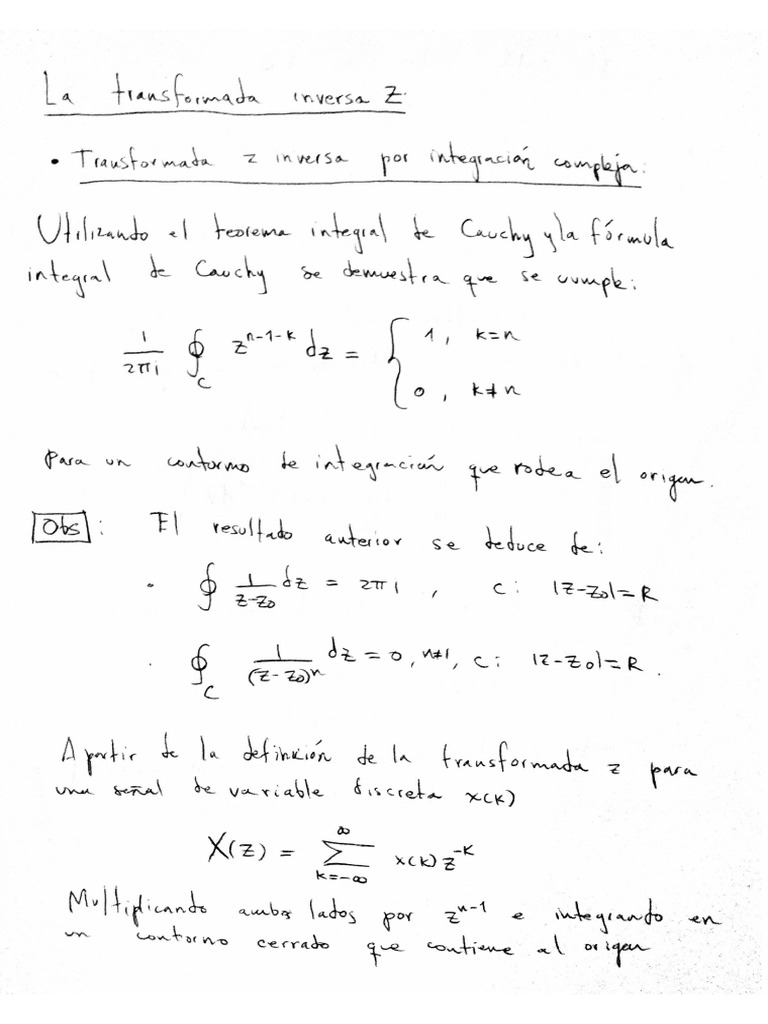 La transformada inversa Z.
• Transformada z inversa por integración compleja:
Utilizando el teorema integral de Cauchy y la fórmula
integral de Cauchy se demuestra que se cumple:
1/(2πi) ∮_C z^(n-1-k) dz = { 1, k=n
0, k≠n
Para un contorno de integración que rodea el origen.
Obs: El resultado anterior se deduce de:
. ∮ 1/(z-z0) dz = 2πi , c: |z-z0|=R
. ∮_C 1/(z-z0)^n dz = 0, n≠1, c: |z-z0|=R.
A partir de la definición de la transformada z para
una señal de variable discreta x(k)
X(z) = ∑_(k=-∞)^∞ x(k) z^(-k)
Multiplicando ambos lados por z^(n-1) e integrando en
un contorno cerrado que contiene al origen